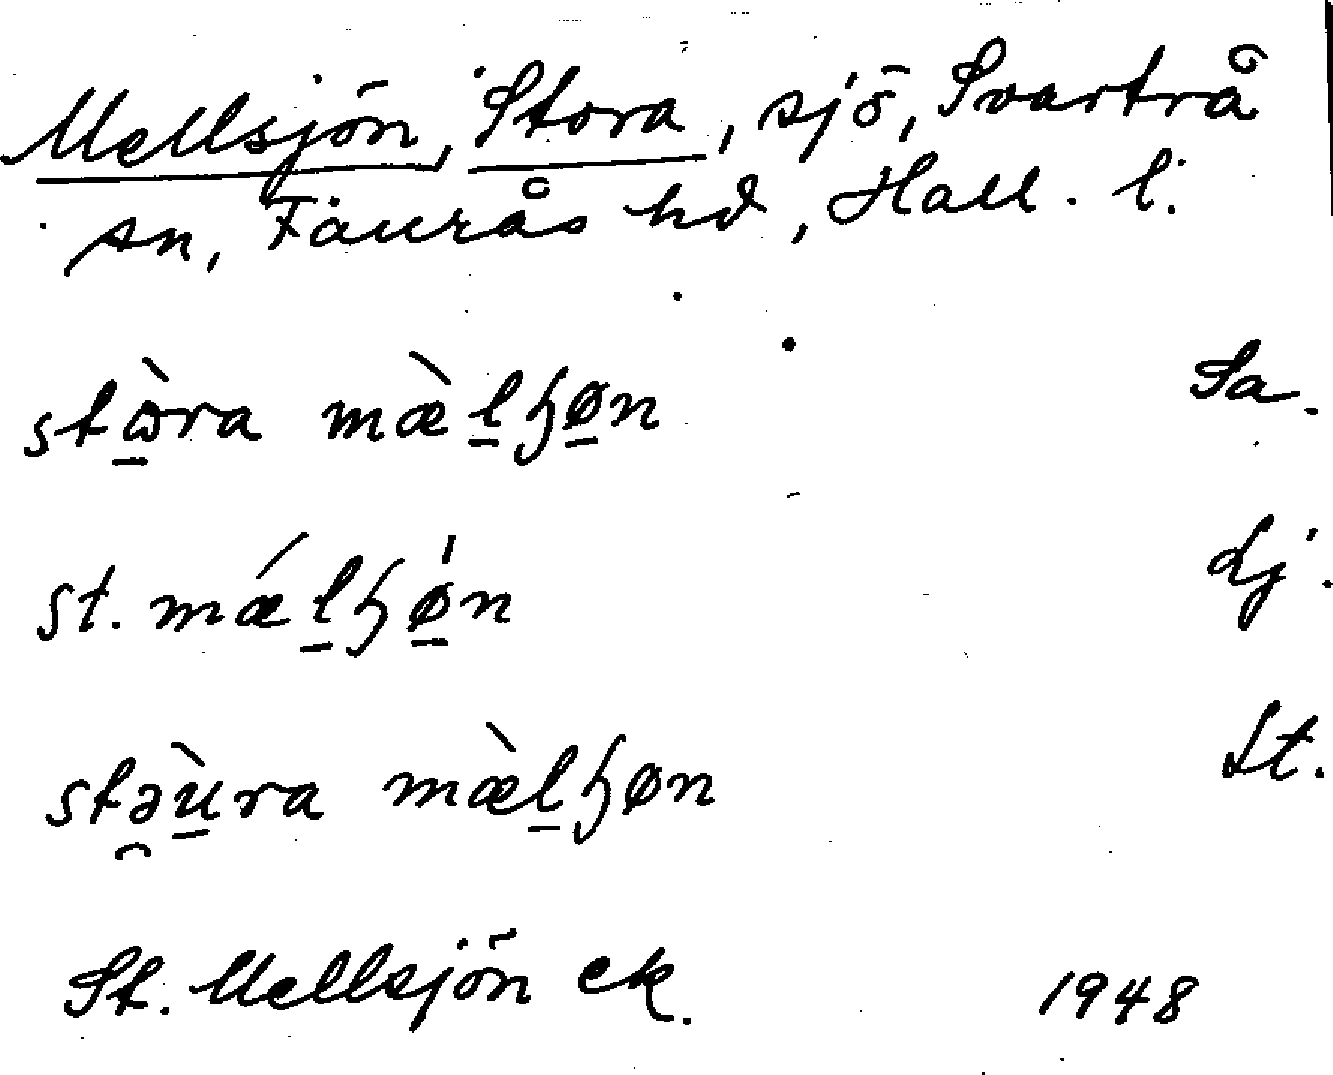 Mellsjön, Stora, sjö, Svartrå
sn, Faurås hd, Hall. l.
stɷ̀ra mæ̀lɧøn Sa.
st. mǽlɧǿn Lj.
stəùra mæ̀lɧøn St.
St. Mellsjön ek. 1948